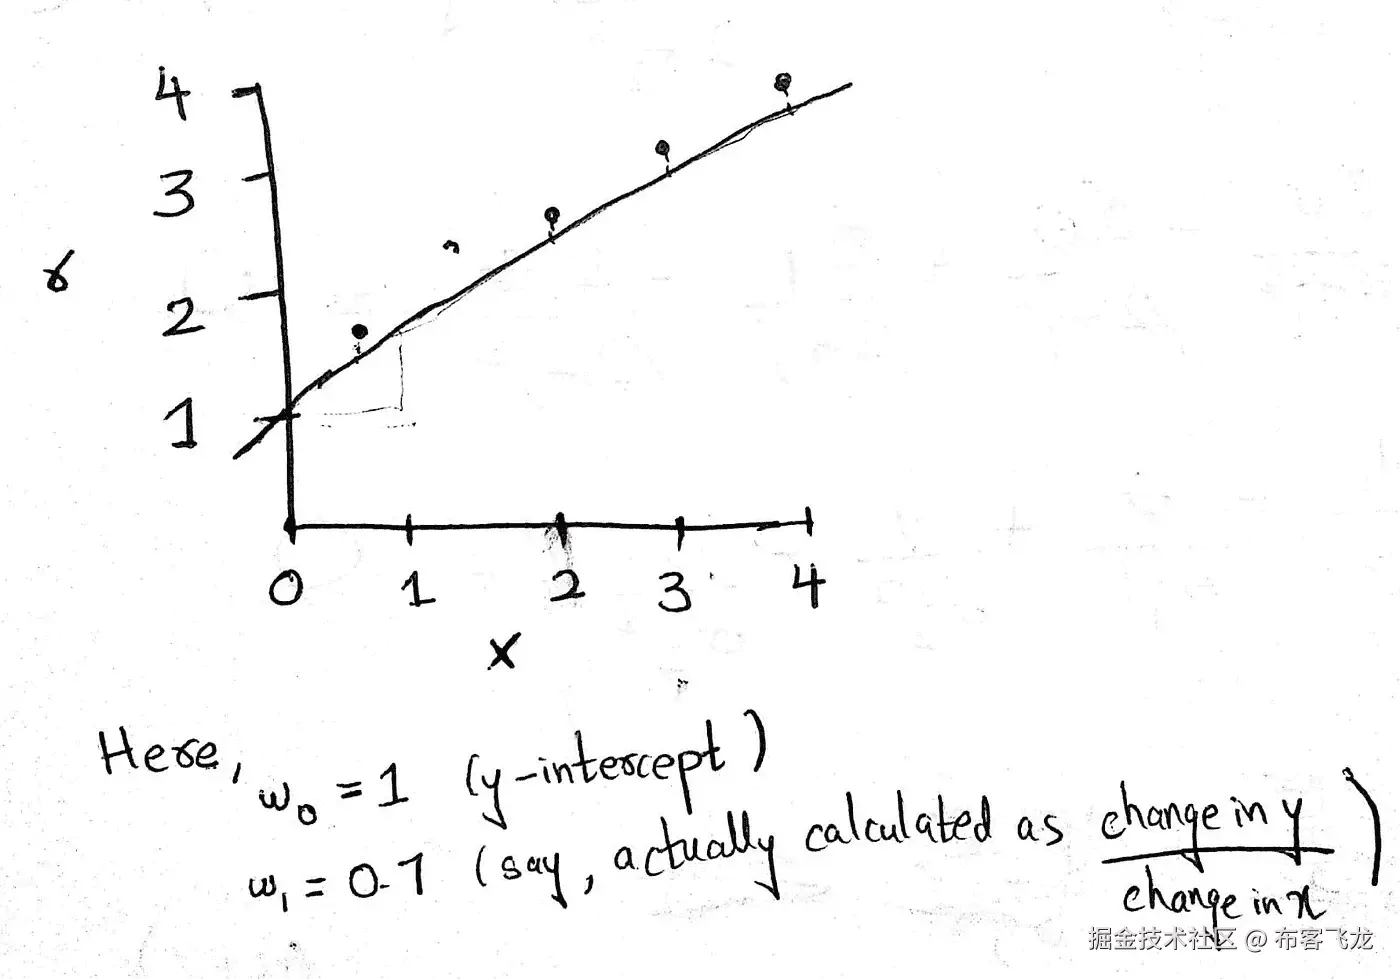 4
3
r
2
1
0 1 2 3 4
x
Here,
w₀ = 1 (y-intercept)
w₁ = 0.7 (say, actually calculated as change in y / change in x)
掘金技术社区 @ 布客飞龙